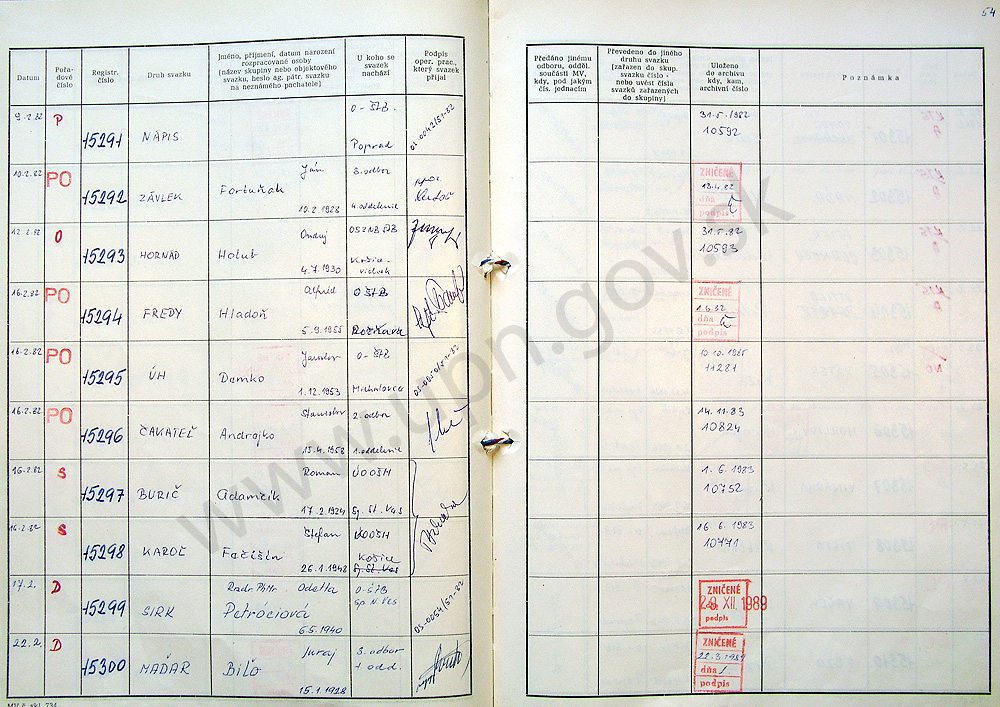 54
Datum
Pořa-
dové
číslo
Registr.
číslo
Druh svazku
Jméno, příjmení, datum narození
rozpracované osoby
(název skupiny nebo objektového
svazku, heslo ag. pátr. svazku
na neznámého pachatele)
U koho se
svazek
nachází
Podpis
oper. prac.,
který svazek
přijal
Předáno jinému
odboru, odděl.
součásti MV,
kdy, pod jakým
čís. jednacím
Převedeno do jiného
druhu svazku
(zařazen do skup.
svazku číslo -
nebo uvést čísla
svazků zařazených
do skupiny)
Uloženo
do archivu
kdy, kam,
archivní číslo
Poznámka
9.2.82 P 15291 NÁPIS O - ŠTB. Poprad 31.5.1982 10592
10.2.82 PO 15292 ZÁVLEK Ján Fortuňak 10.2.1928 3. odbor 4. oddelenie ZNIČENÉ 13.4.82 dňa podpis
12.2.82 O 15293 HORNÁD Ondrej Holub 4.7.1930 Košice- 31.5.82 10593
16.2.82 PO 15294 FREDY Alfréd Hladoň 5.9.1955 O ŠTB Rožňava ZNIČENÉ dňa podpis
16.2.82 PO 15295 ÚH Jaroslav Demko 1.12.1953 O - ŠTB Michalovce 10.10.1985 11281
16.2.82 PO 15296 ČAKATEĽ Stanislav Andrejko 15.4.1958 2. odbor 1. oddelenie 14.11.83 10824
16.2.82 S 15297 BURIČ Roman Adamčík 17.2.1924 ÚOOŠH Sp. St. Ves 1.6.1983 10752
16.2.82 S 15298 KAROL Štefan 26.1.1948 ÚOOŠH Košice Sp. St. Ves 16.6.1983 10771
17.2. D 15299 SIRK Odetta Petróciová 6.5.1940 O-ŠTB Sp. N. Ves ZNIČENÉ 29 XII. 1989 podpis
22.2. D 15300 MAĎAR Juraj Biľo 15.1.1928 3. odbor 1 odd. ZNIČENÉ dňa podpis
www.upn.gov.sk